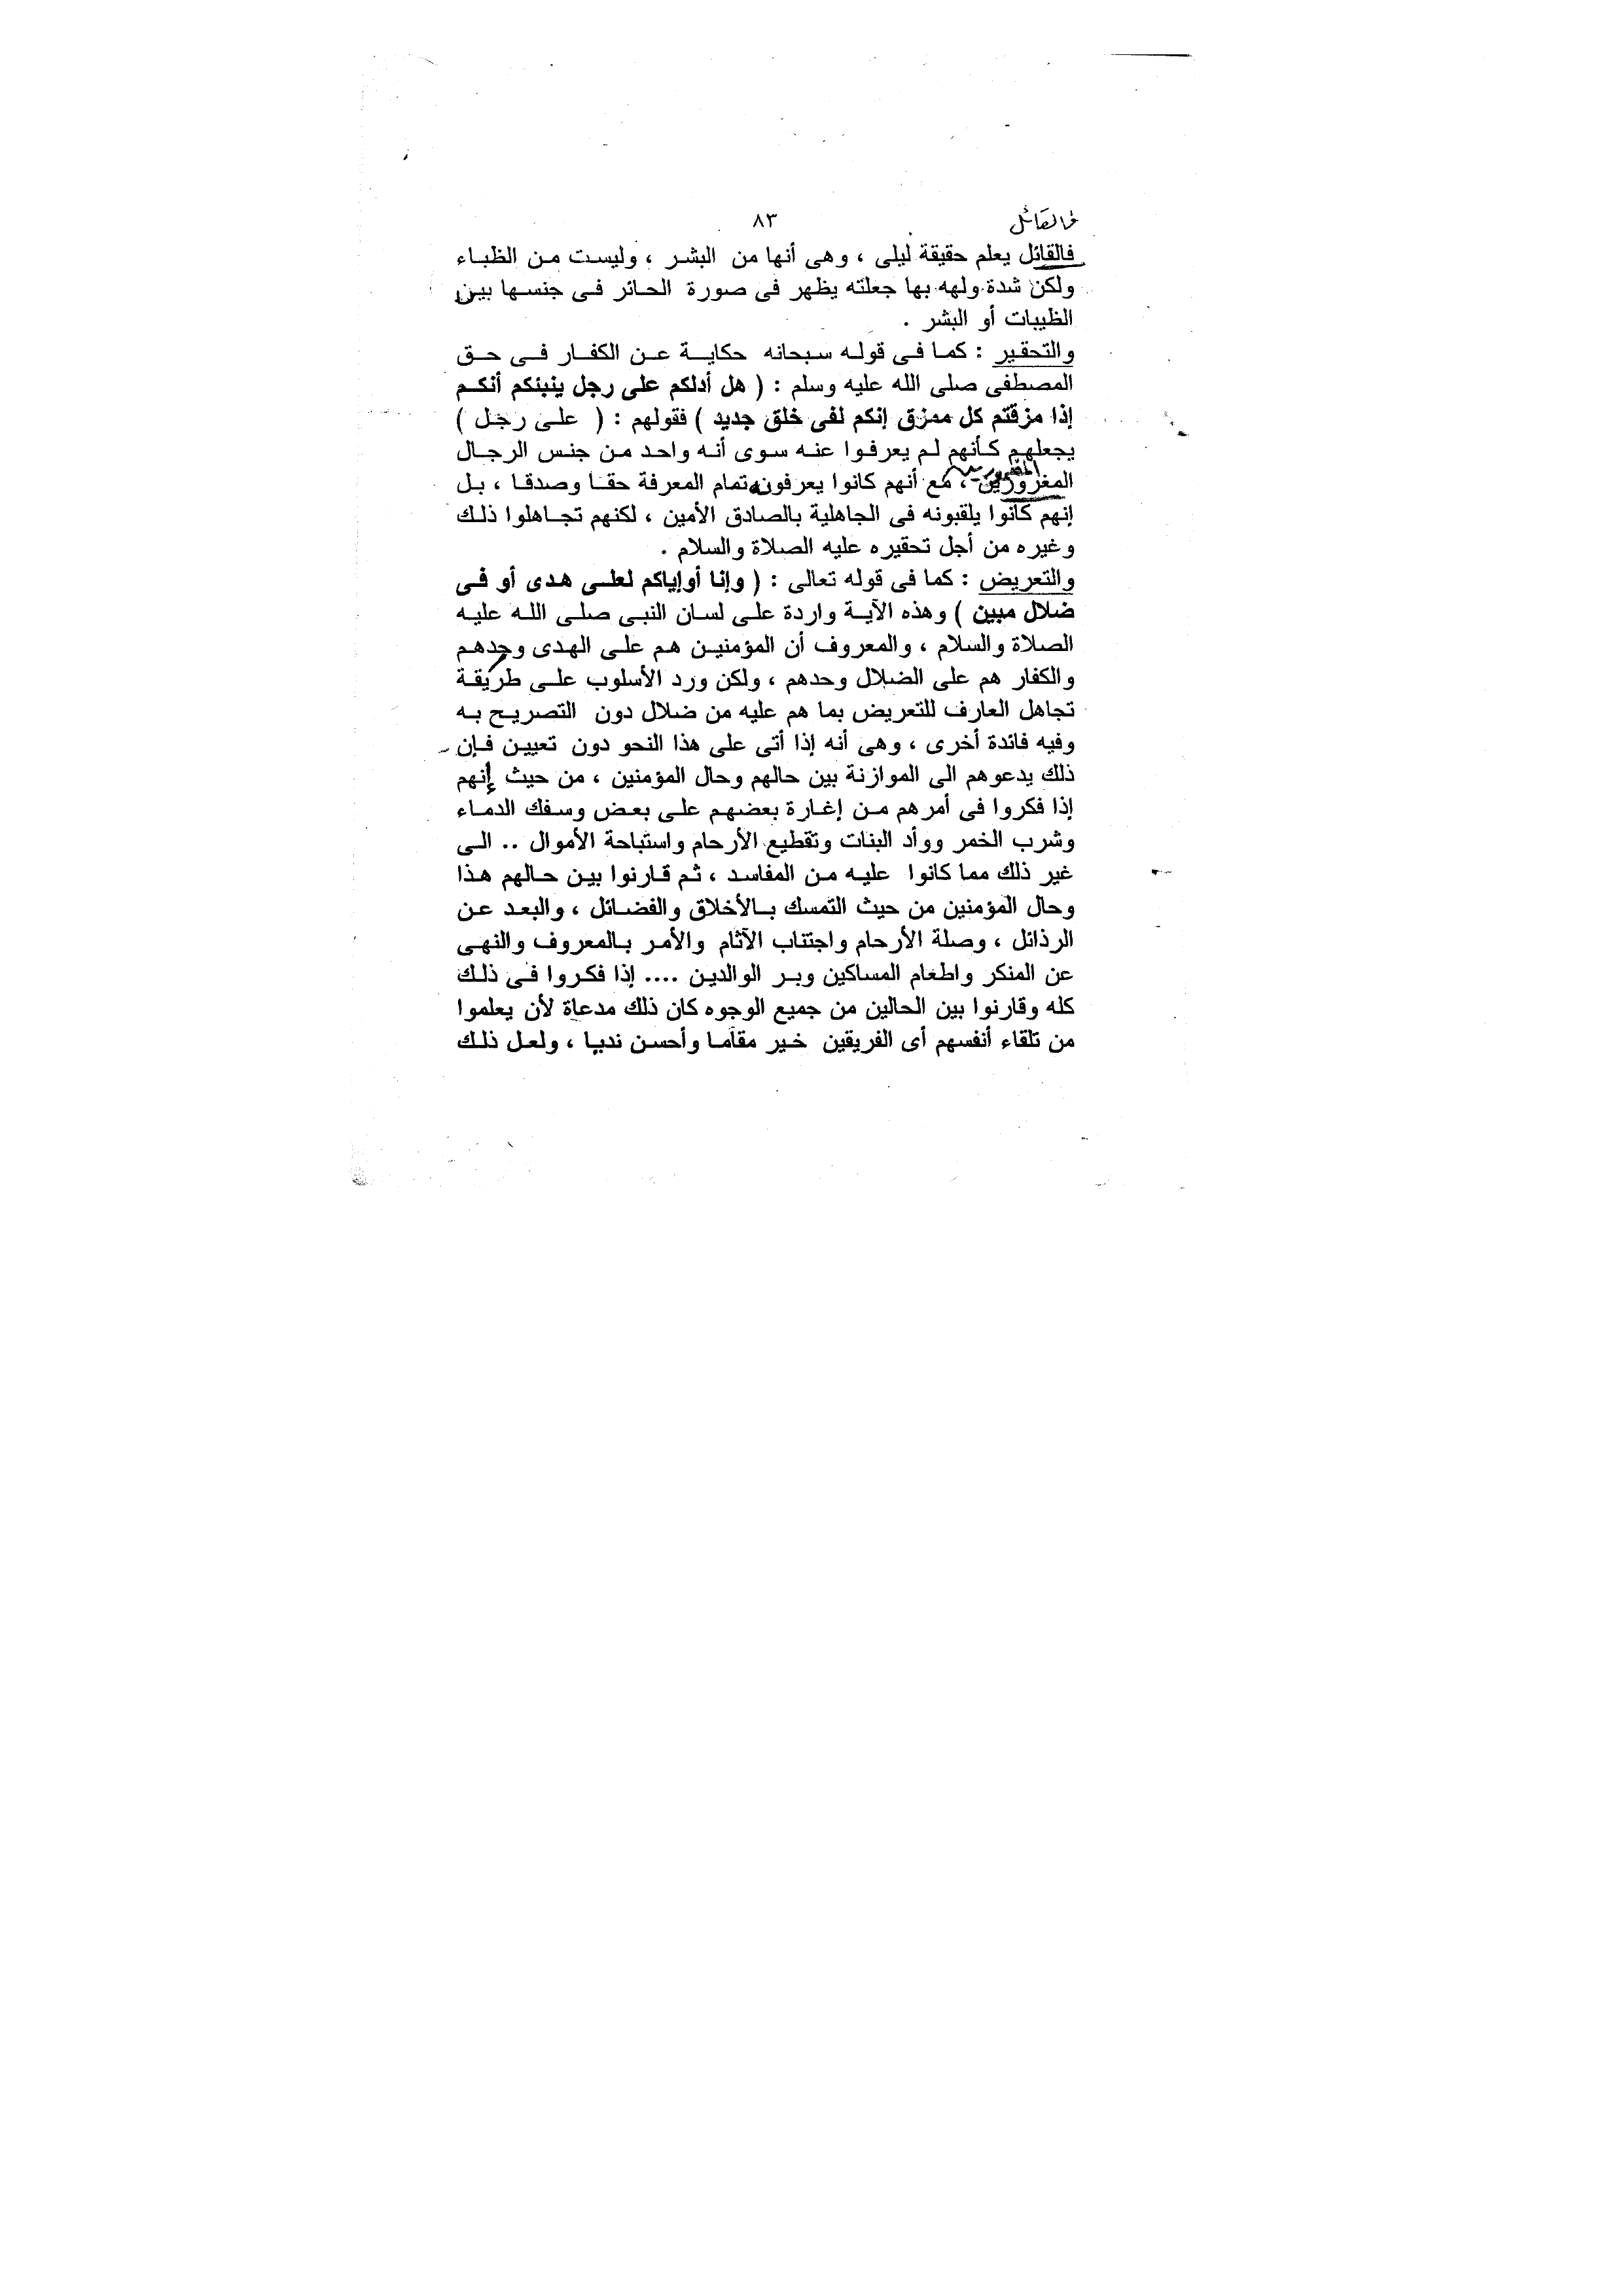 ٨٣
فالقائل يعلم حقيقة ليلى ، وهى أنها من البشر ، وليست من الظباء
ولكن شدة ولهه بها جعلته يظهر فى صورة الحائر فى جنسها بين
الظيبات أو البشر .
والتحقير : كما فى قوله سبحانه حكاية عن الكفار فى حق
المصطفى صلى الله عليه وسلم : ( هل أدلكم على رجل ينبئكم أنكم
إذا مزقتم كل ممزق إنكم لفى خلق جديد ) فقولهم : ( على رجل )
يجعلهم كأنهم لم يعرفوا عنه سوى أنه واحد من جنس الرجال
المغرورين ، مع أنهم كانوا يعرفونه تمام المعرفة حقا وصدقا ، بل
إنهم كانوا يلقبونه فى الجاهلية بالصادق الأمين ، لكنهم تجاهلوا ذلك
وغيره من أجل تحقيره عليه الصلاة والسلام .
والتعريض : كما فى قوله تعالى : ( وإنا أوإياكم لعلى هدى أو فى
ضلال مبين ) وهذه الآية واردة على لسان النبى صلى الله عليه
الصلاة والسلام ، والمعروف أن المؤمنين هم على الهدى وحدهم
والكفار هم على الضلال وحدهم ، ولكن ورد الأسلوب على طريقة
تجاهل العارف للتعريض بما هم عليه من ضلال دون التصريح به
وفيه فائدة أخرى ، وهى أنه إذا أتى على هذا النحو دون تعيين فإن
ذلك يدعوهم الى الموازنة بين حالهم وحال المؤمنين ، من حيث إنهم
إذا فكروا فى أمرهم من إغارة بعضهم على بعض وسفك الدماء
وشرب الخمر ووأد البنات وتقطيع الأرحام واستباحة الأموال .. الى
غير ذلك مما كانوا عليه من المفاسد ، ثم قارنوا بين حالهم هذا
وحال المؤمنين من حيث التمسك بالأخلاق والفضائل ، والبعد عن
الرذائل ، وصلة الأرحام واجتناب الآثام والأمر بالمعروف والنهى
عن المنكر واطعام المساكين وبر الوالدين .... إذا فكروا فى ذلك
كله وقارنوا بين الحالين من جميع الوجوه كان ذلك مدعاة لأن يعلموا
من تلقاء أنفسهم أى الفريقين خير مقاما وأحسن نديا ، ولعل ذلك